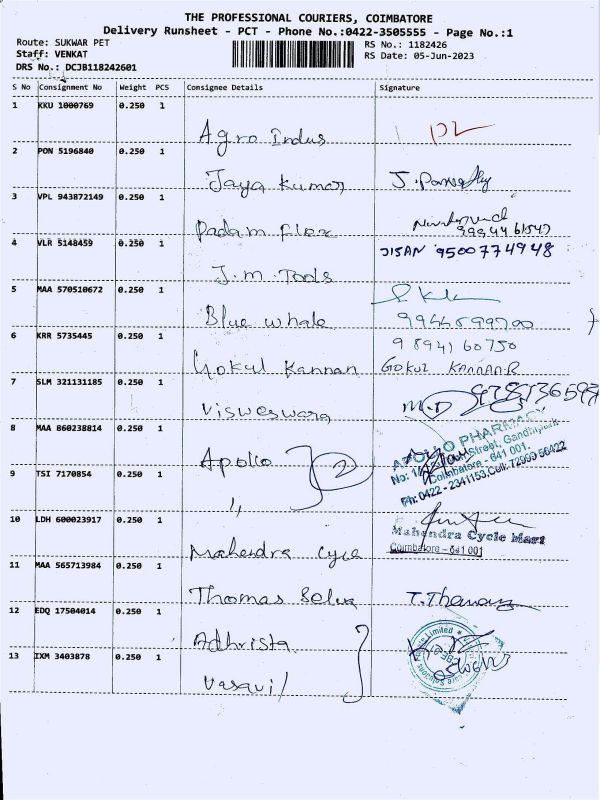 THE PROFESSIONAL COURIERS, COIMBATORE
Delivery Runsheet - PCT - Phone No.:0422-3505555 - Page No.:1
Route: SUKWAR PET
RS No.: 1182426
Staff: VENKAT
RS Date: 05-Jun-2023
DRS No.: DCJB118242601
S No Consignment No Weight PCS Consignee Details Signature
1 KKU 1000769 0.250 1
Agro Indus
2 PON 5196840 0.250 1
Jaya Kumar J.
3 VPL 943872149 0.250 1
Padam Flex
4 VLR 5148459 0.250 1 JISAN 9500774948
J.m. Tools
5 MAA 570510672 0.250 1
Blue whale 9944599700
6 KRR 5735445 0.250 1 9894160750
Gokul Kannan GOKUL KANNAN.R
7 SLM 321131185 0.250 1
Visweswara M.D
8 MAA 860238814 0.250 1 APOLLO PHARMACY
Apollo 2 Street, Gandhipark
Coimbatore - 641 001.
9 TSI 7170854 0.250 1 Ph: 0422 - 2341153, Cell: 72999 56422
,,
10 LDH 600023917 0.250 1
Mahendra Cycle Mahendra Cycle Mart
Coimbatore - 641 001
11 MAA 565713984 0.250 1
Thomas Selva T.
12 EDQ 17504014 0.250 1
Adhrista Limited
13 IXM 3403878 0.250 1
Vasavi